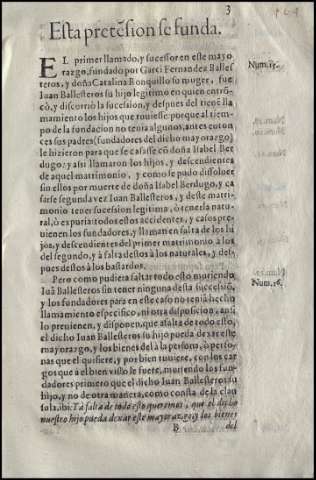 3
Esta pretẽsion se funda.
EL primer llamado, y sucessor en este mayo
razgo, fundado por Garci Fernandez Balles
teros, y doña Catalina Ronquillo su muger, fue
Juan Ballesteros su hijo legitimo en quien entrõ
co, y discorriò la sucesion, y despues del tiene lla
mamiento los hijos que tuuiesse: porque al tiem
po de la fundacion no tenia algunos, antes enton
ces sus padres (fundadores del dicho mayorazgo)
le hizieron para que se casasse cõ doña Isabel Ber
dugo: y assi llamaron los hijos, y descendientes
de aquel matrimonio, y como se pudo dissoluer
sin ellos por muerte de doña Isabel Berdugo, y ca
sarse segunda vez Juan Ballesteros, y deste matri-
monio tener sucesion legitima, ò tenerla natu-
ral, ò espuria: todos estos accidentes, y casos pre
uienen los fundadores, y llaman en falta de los hi
jos, y descendientes del primer matrimonio à los
del segundo, y à falta destos à los naturales, y des
pues destos à los bastardos.
Pero como pudiera faltar todo esto, muriendo
Juã Ballesteros sin tener ninguna desta sucessiõ,
y los fundadores para en este caso no teniã hecho
llamamiento especifico, ni otra disposicion, anti
lo preuienen, y disponen, que a falta de todo esto,
el dicho Juan Ballesteros su hijo pueda dexar este
mayorazgo, y los bienes del à la persona, ò perso-
nas que el quisiere, y por bien tuuiere, con los car
gos que à el bien visto le fuere, muriendo los fun
dadores primero que el dicho Juan Ballesteros su
hijo, y no de otra manera, como consta de la clau
sula, ibi: Y à falta de todo esto queremos, que el dicho
nuestro hijo pueda dexar este mayorazgo, y los bienes
B del
Num. 15.
Num. 16.